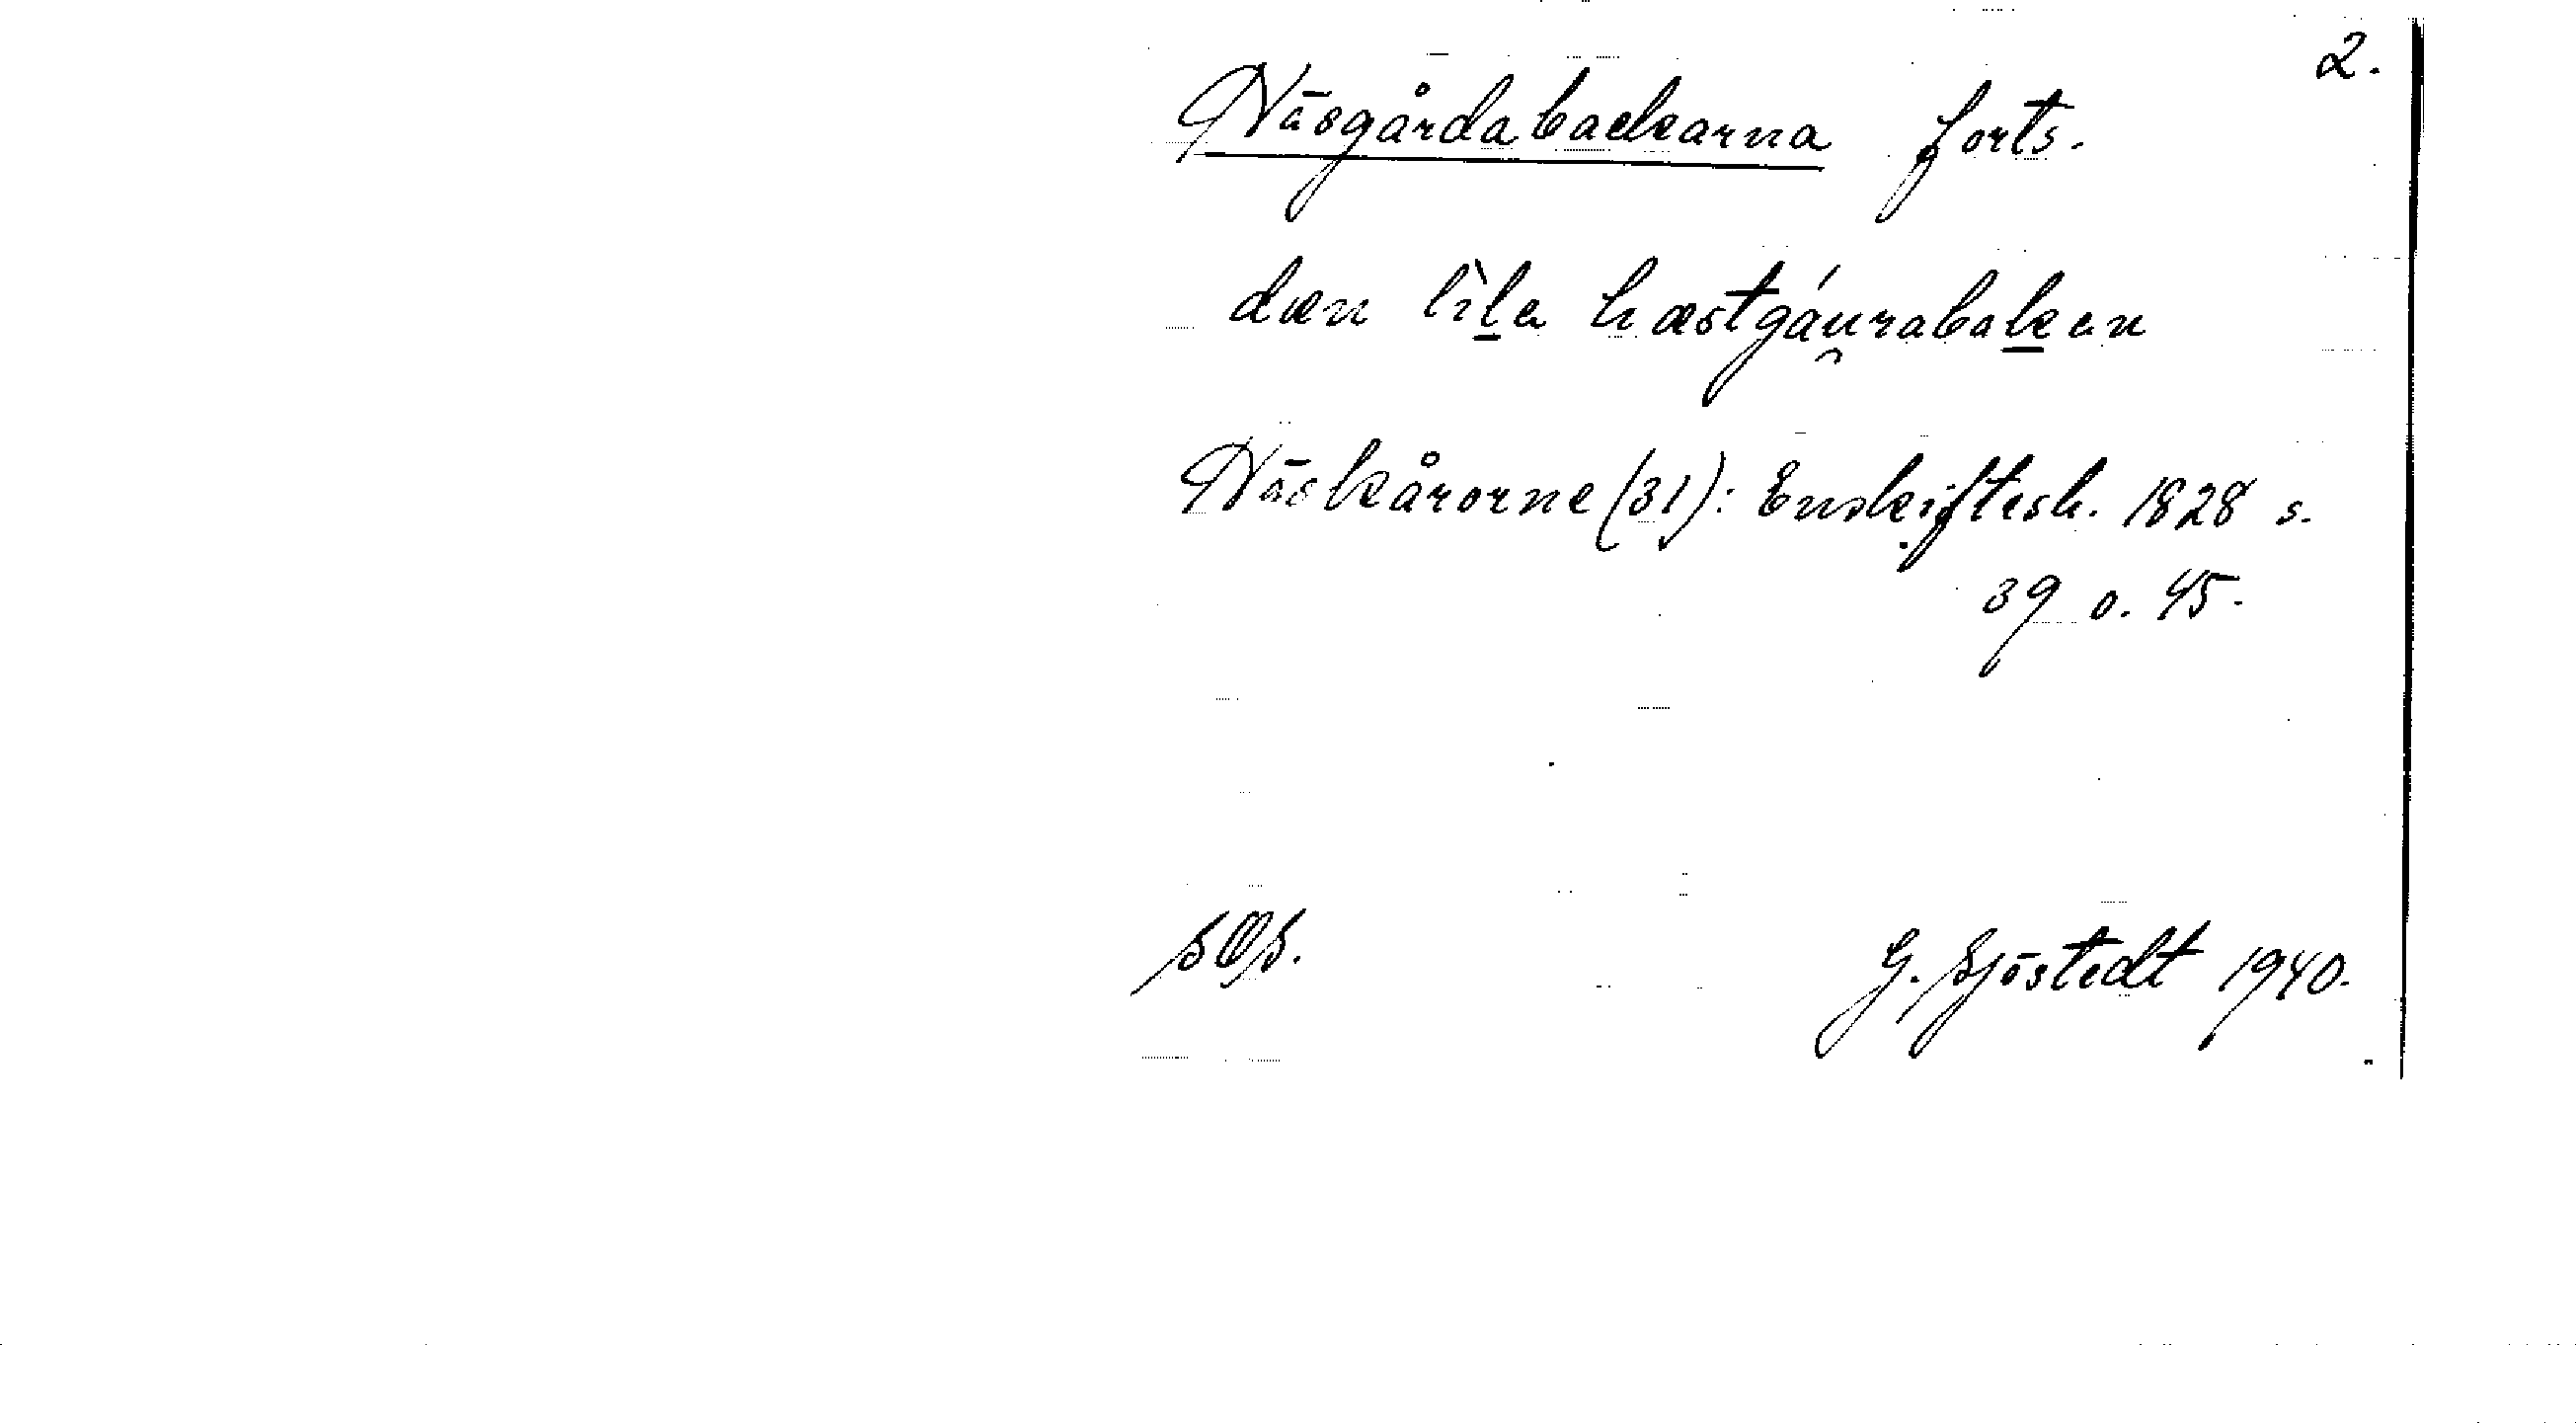 2.
Näsgårdabackarna forts.
dæn lìl̲a hæstgáu̯rabak̲an
Näskårorne (31): Enskiftesh. 1828 s.
39 o. 45.
G. Sjöstedt 1940.